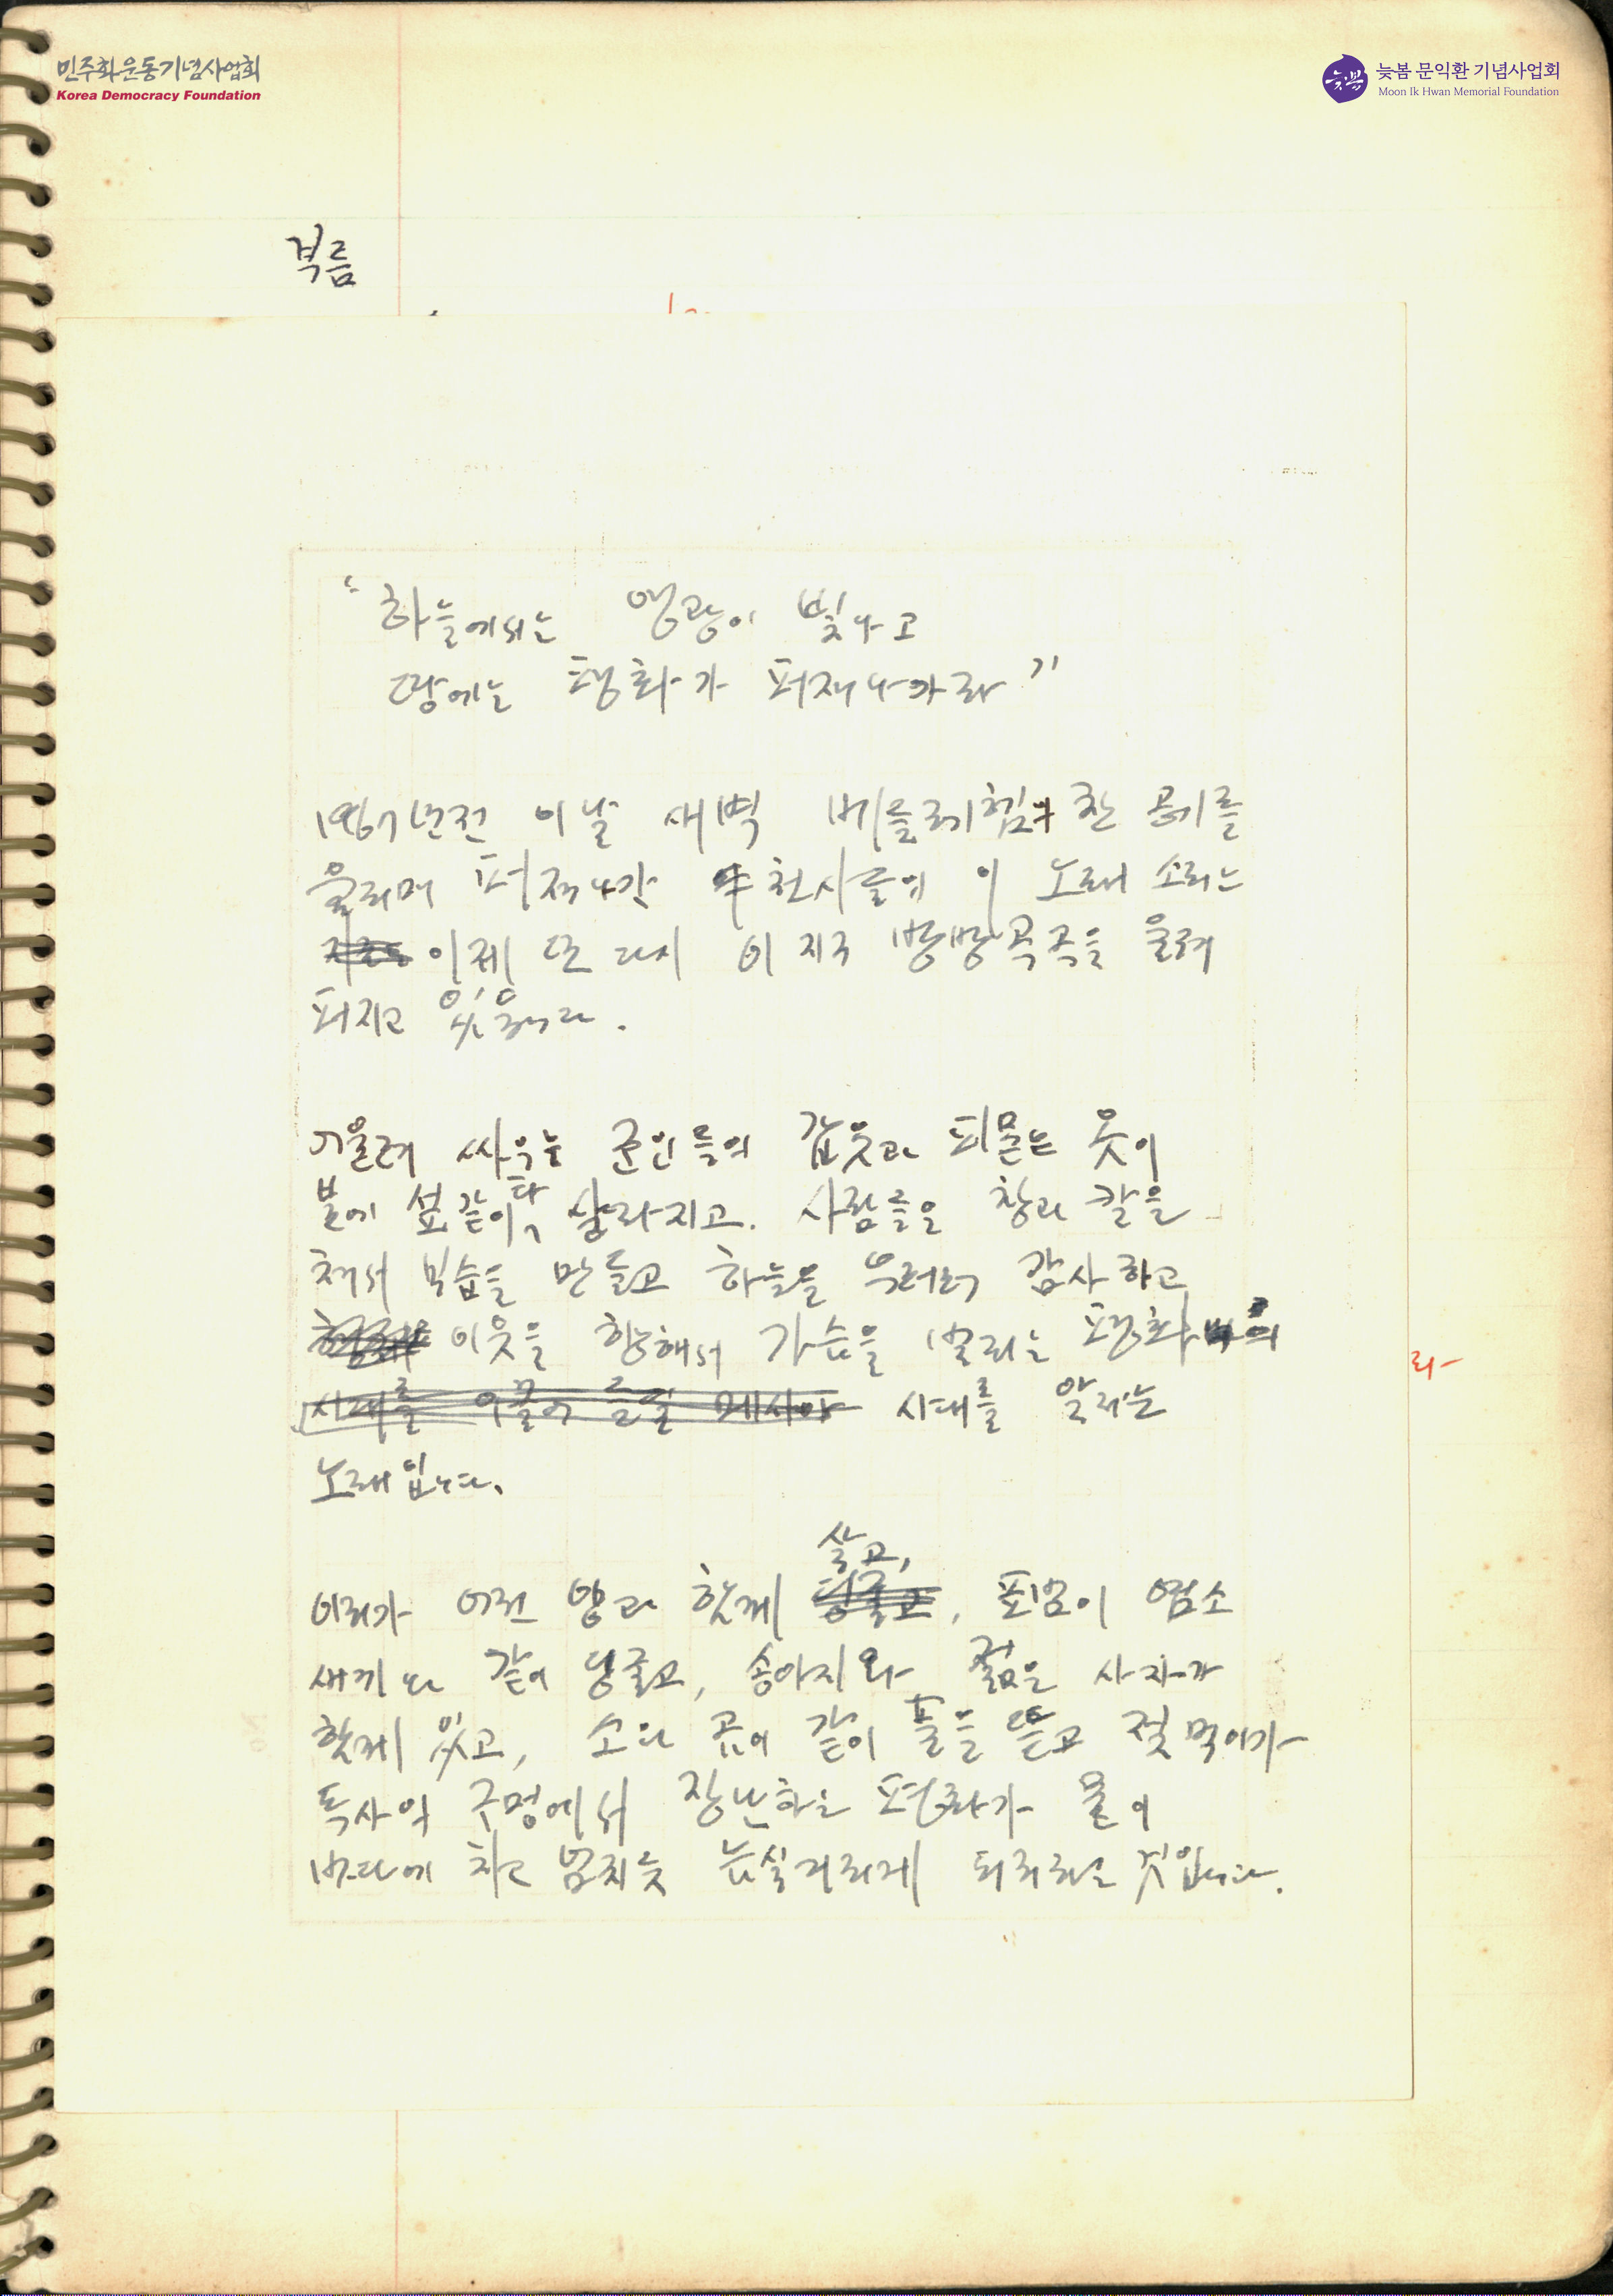 민주화운동기념사업회
Korea Democracy Foundation
늦봄 문익환 기념사업회
Moon Ik Hwan Memorial Foundation
늦봄
부름
"하늘에서는 영광이 빛나고
땅에는 평화가 퍼져나가라"
1967년전 이날 새벽 베들레헴 찬 공기를
울리며 퍼져나간 천사들의 이 노래 소리는
이제 또 다시 이 지구 방방곡곡을 울려
퍼지고 있읍니다.
어울려 싸우는 군인들의 갑옷과 피묻은 옷이
불에 섶같이 타 살라지고. 사람들은 창과 칼을
쳐서 보습을 만들고 하늘을 우러러 감사하고
이웃을 향해서 가슴을 벌리는 평화의
시대를 이끌어 들일 메시아 시대를 알리는
노래입니다.
살고,
이리가 어린 양과 함께 뒹굴고, 표범이 염소
새끼와 같이 뒹굴고, 송아지와 젊은 사자가
함께 있고, 소와 곰이 같이 풀을 뜯고 젖먹이가
독사의 구멍에서 장난하는 평화가 물이
바다에 차고 넘치듯 늠실거리게 되리라는 것입니다.
라